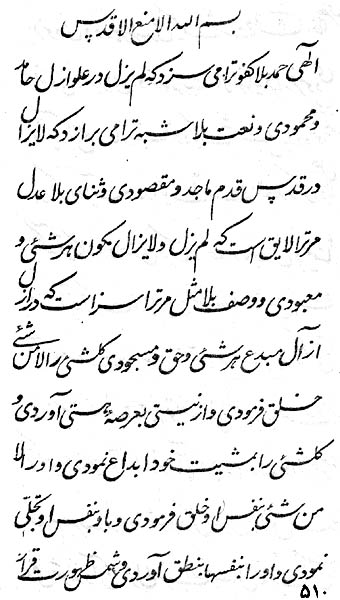 بسم الله الامنع الاقدس
الهی حمد بلا کفو ترا می سزد که لم یزل در علو ازل حامد
و محمودی و نعت بلا شبه ترا می برازد که لایزال
در قدس قدم ماجد و مقصودی و ثنای بلا عدل
مر ترا لایق است که لم یزل و لایزال مکون هر شیئی و
معبودی و وصف بلا مثل مر ترا سزاست که در ازل
آزال مبدع هر شیئی و حق و مسجودی کلشیئ را لا من شیئ
خلق فرمودی و از نیستی بعرصهٔ هستی آوردی و
کلشیئ را بمشیت خود ابداع نمودی و او را لا
من شیئ بنفس او خلق فرمودی و باو بنفس او تجلی
نمودی و او را بنفسها بنطق آوردی و شمس ظهورت
۵۱۰